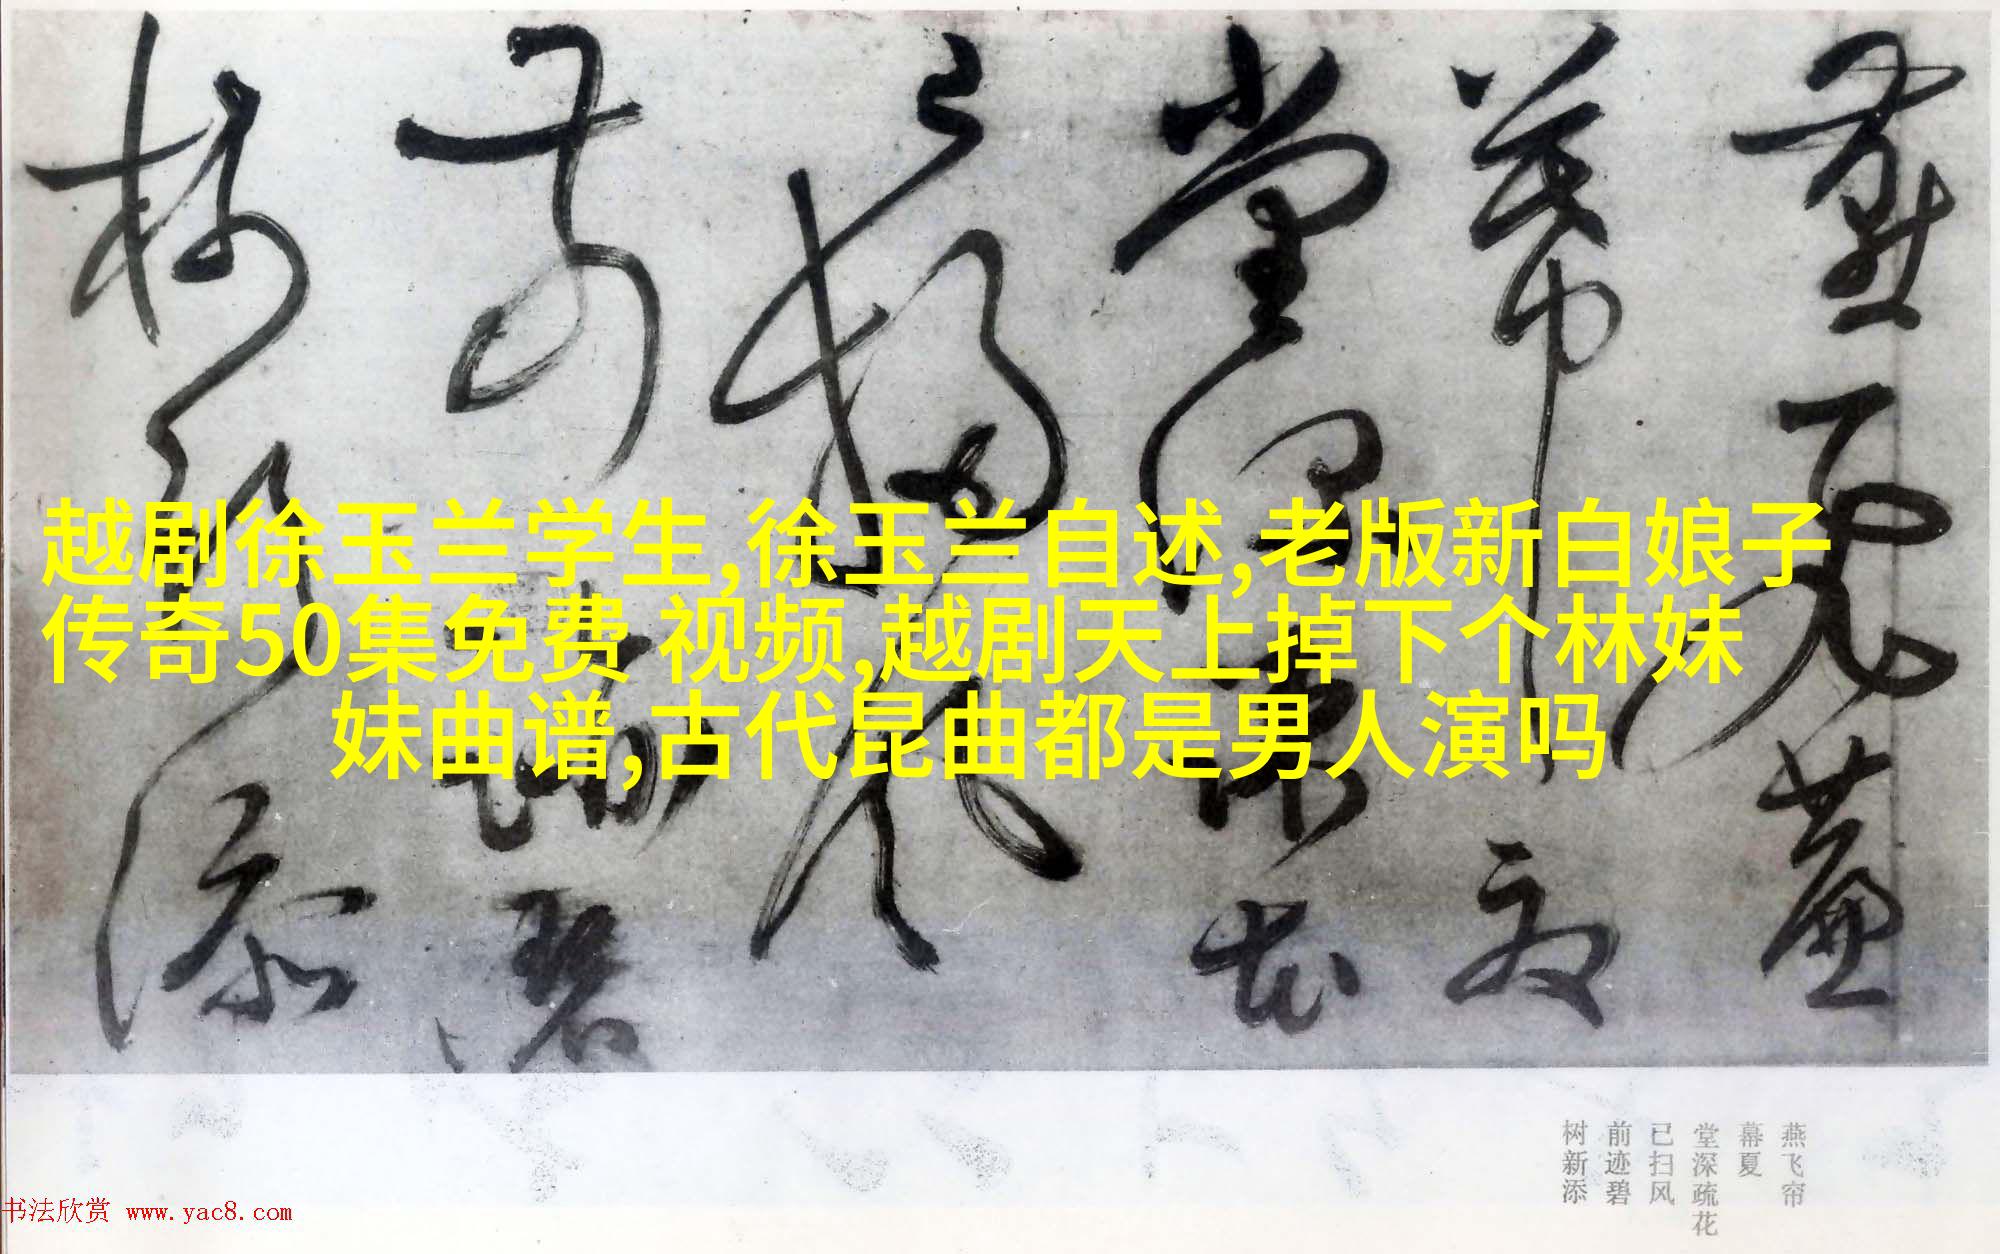 越剧徐玉兰学生,徐玉兰自述,老版新白娘子
传奇50集免费 视频,越剧天上掉下个林妹
妹曲谱,古代昆曲都是男人演吗
燕飞帘
幕夏
堂深疏花
已扫风
前迹碧
树新添
书法欣赏 www.yac8.com